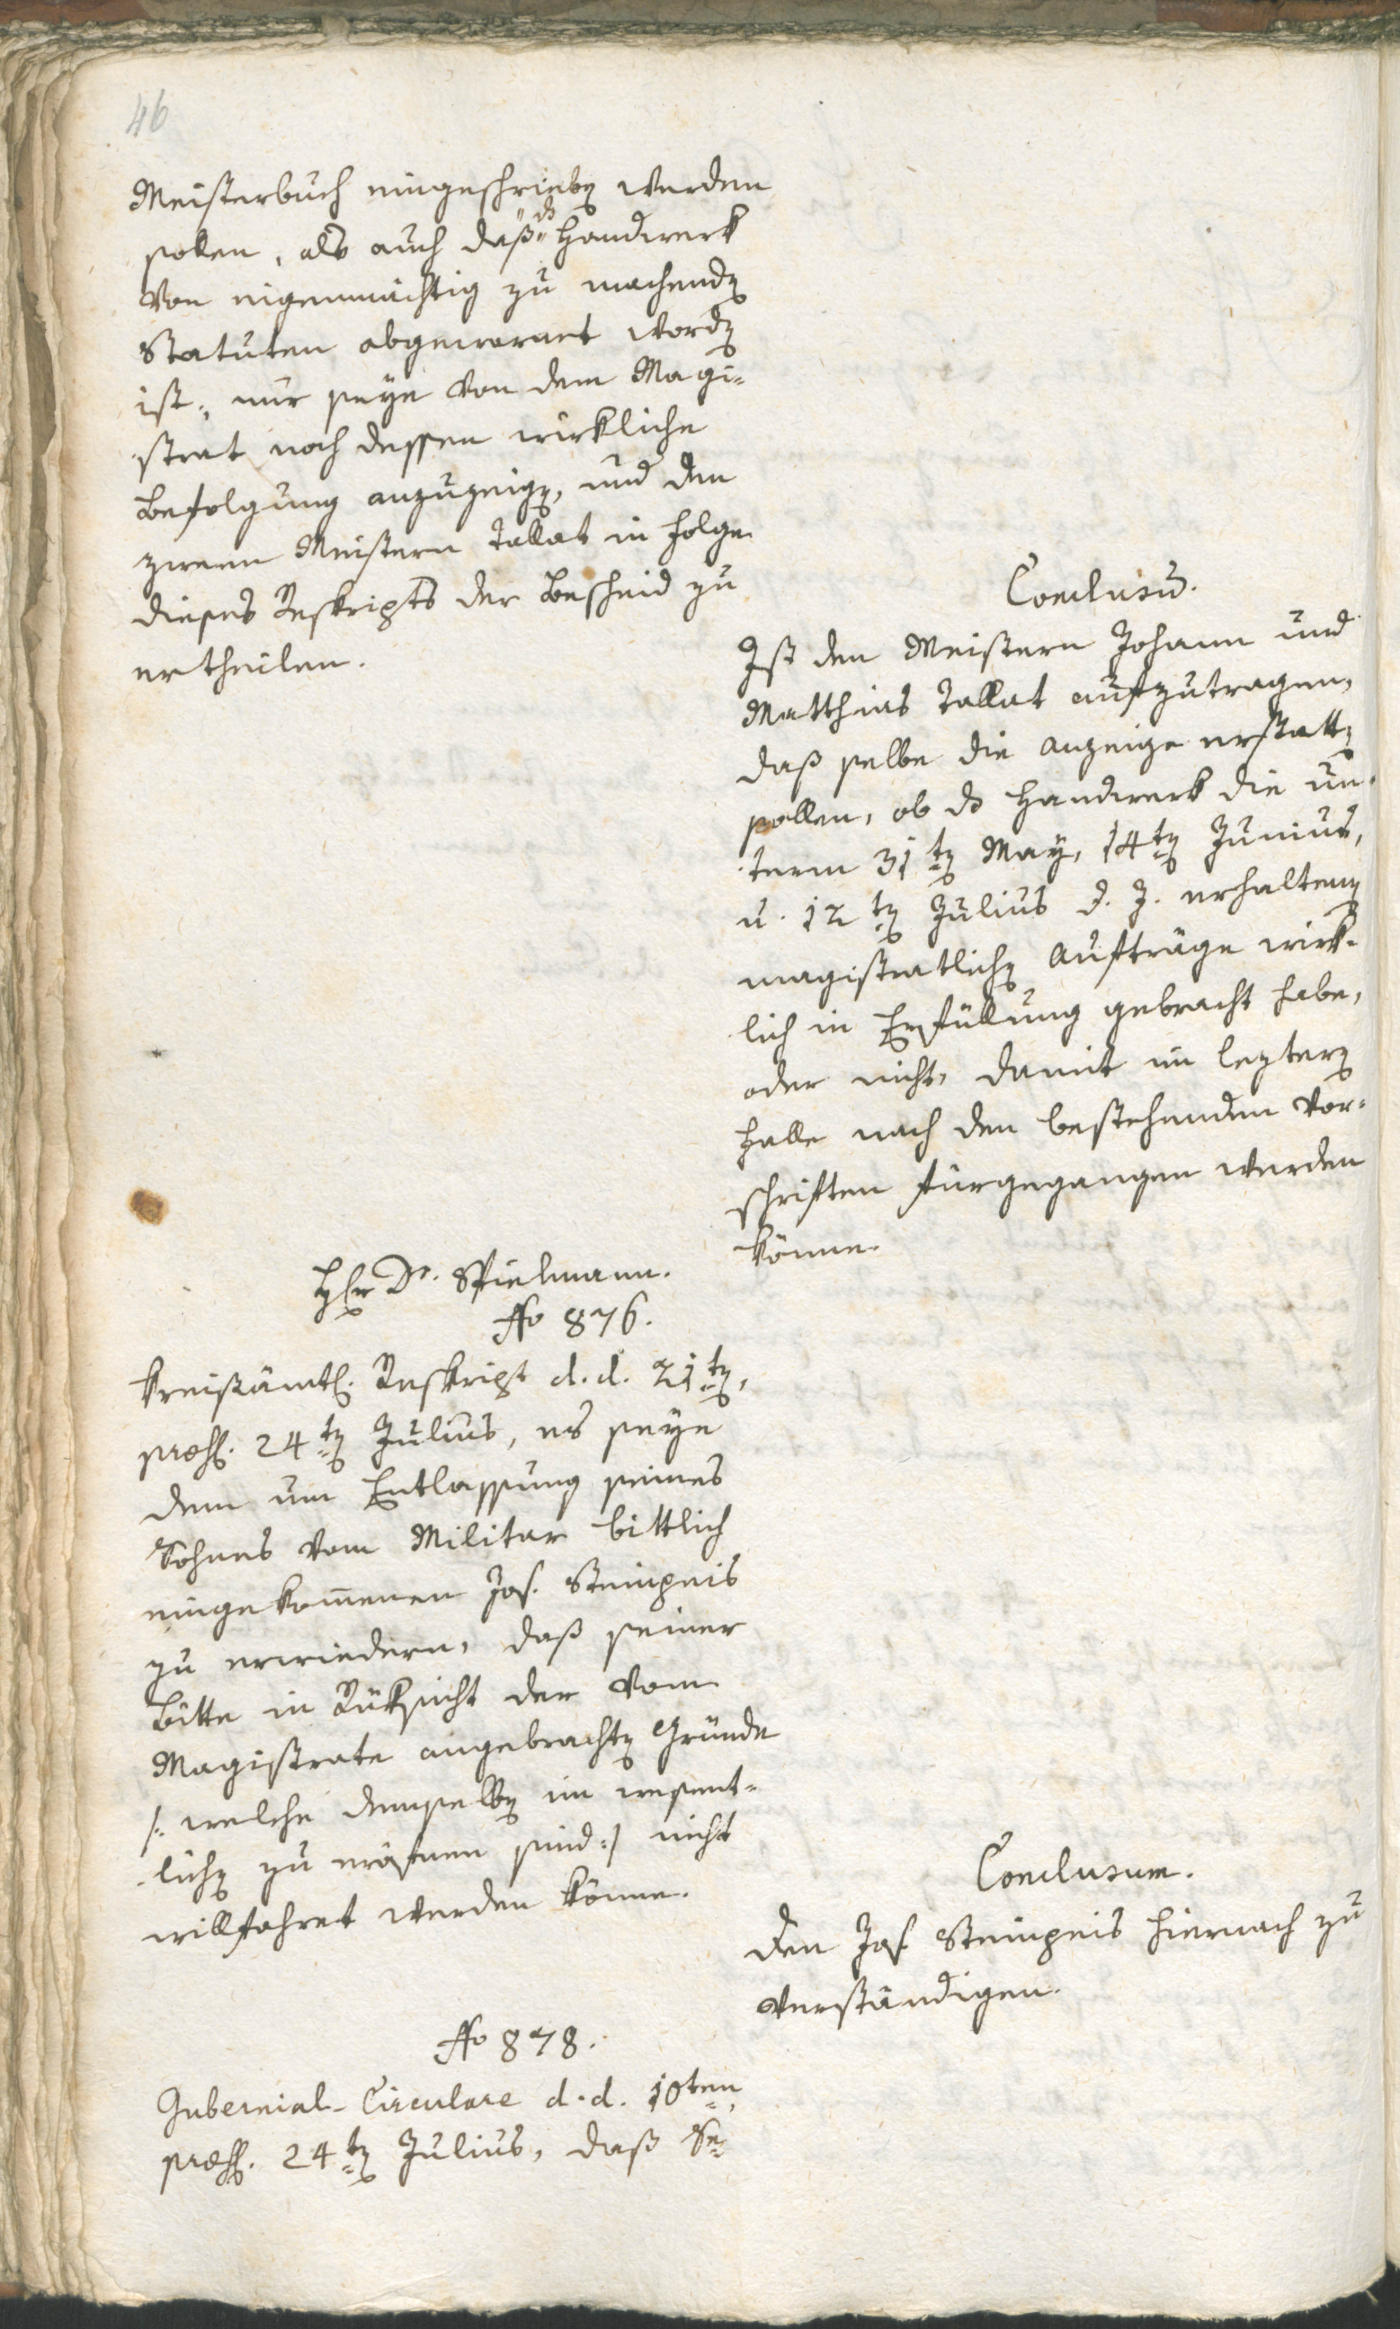 46
Meisterbuch eingeschrieben werden
sollen, als auch daß das Handwerk
von eigenmächtig zu machenden
Statuten abgewarnet worden
ist; nur seye von dem Magi-
strat noch dessen wirkliche
Befolgung anzuzeigen, und den
zween Meistern Tallat in Folge
dieses Reskripts der Bescheid zu
ertheilen.
Conclusum.
Ist den Meistern Johann und
Matthias Tallat aufzutragen,
daß selbe die Anzeige erstatten
sollen, ob das Handwerk die un-
term 31ten May, 14ten Junius,
u. 12ten Julius d. J. erhaltenen
magistratlichen Aufträge wirk-
lich in Erfüllung gebracht habe,
oder nicht, damit im lezteren
Falle nach den bestehenden Vor-
schriften fürgegangen werden
könne.
Hr Dr. Spielmann.
No 876.
Kreisämtl. Reskript d. d. 21ten,
præs. 24ten Julius, es seye
dem um Entlassung seines
Sohnes vom Militar bittlich
eingekom̄enen Jos. Steinpeis
zu erwiedern, daß seiner
Bitte in Rüksicht der vom
Magistrate angebrachten Gründe
/: welche demselben im wesent-
lichen zu eröfnen sind :/ nicht
willfahret werden könne.
Conclusum.
Den Jos. Steinpeis hiernach zu
verständigen.
No 878.
Gubernial-Circulare d. d. 10ten,
præs. 24ten Julius, daß Se